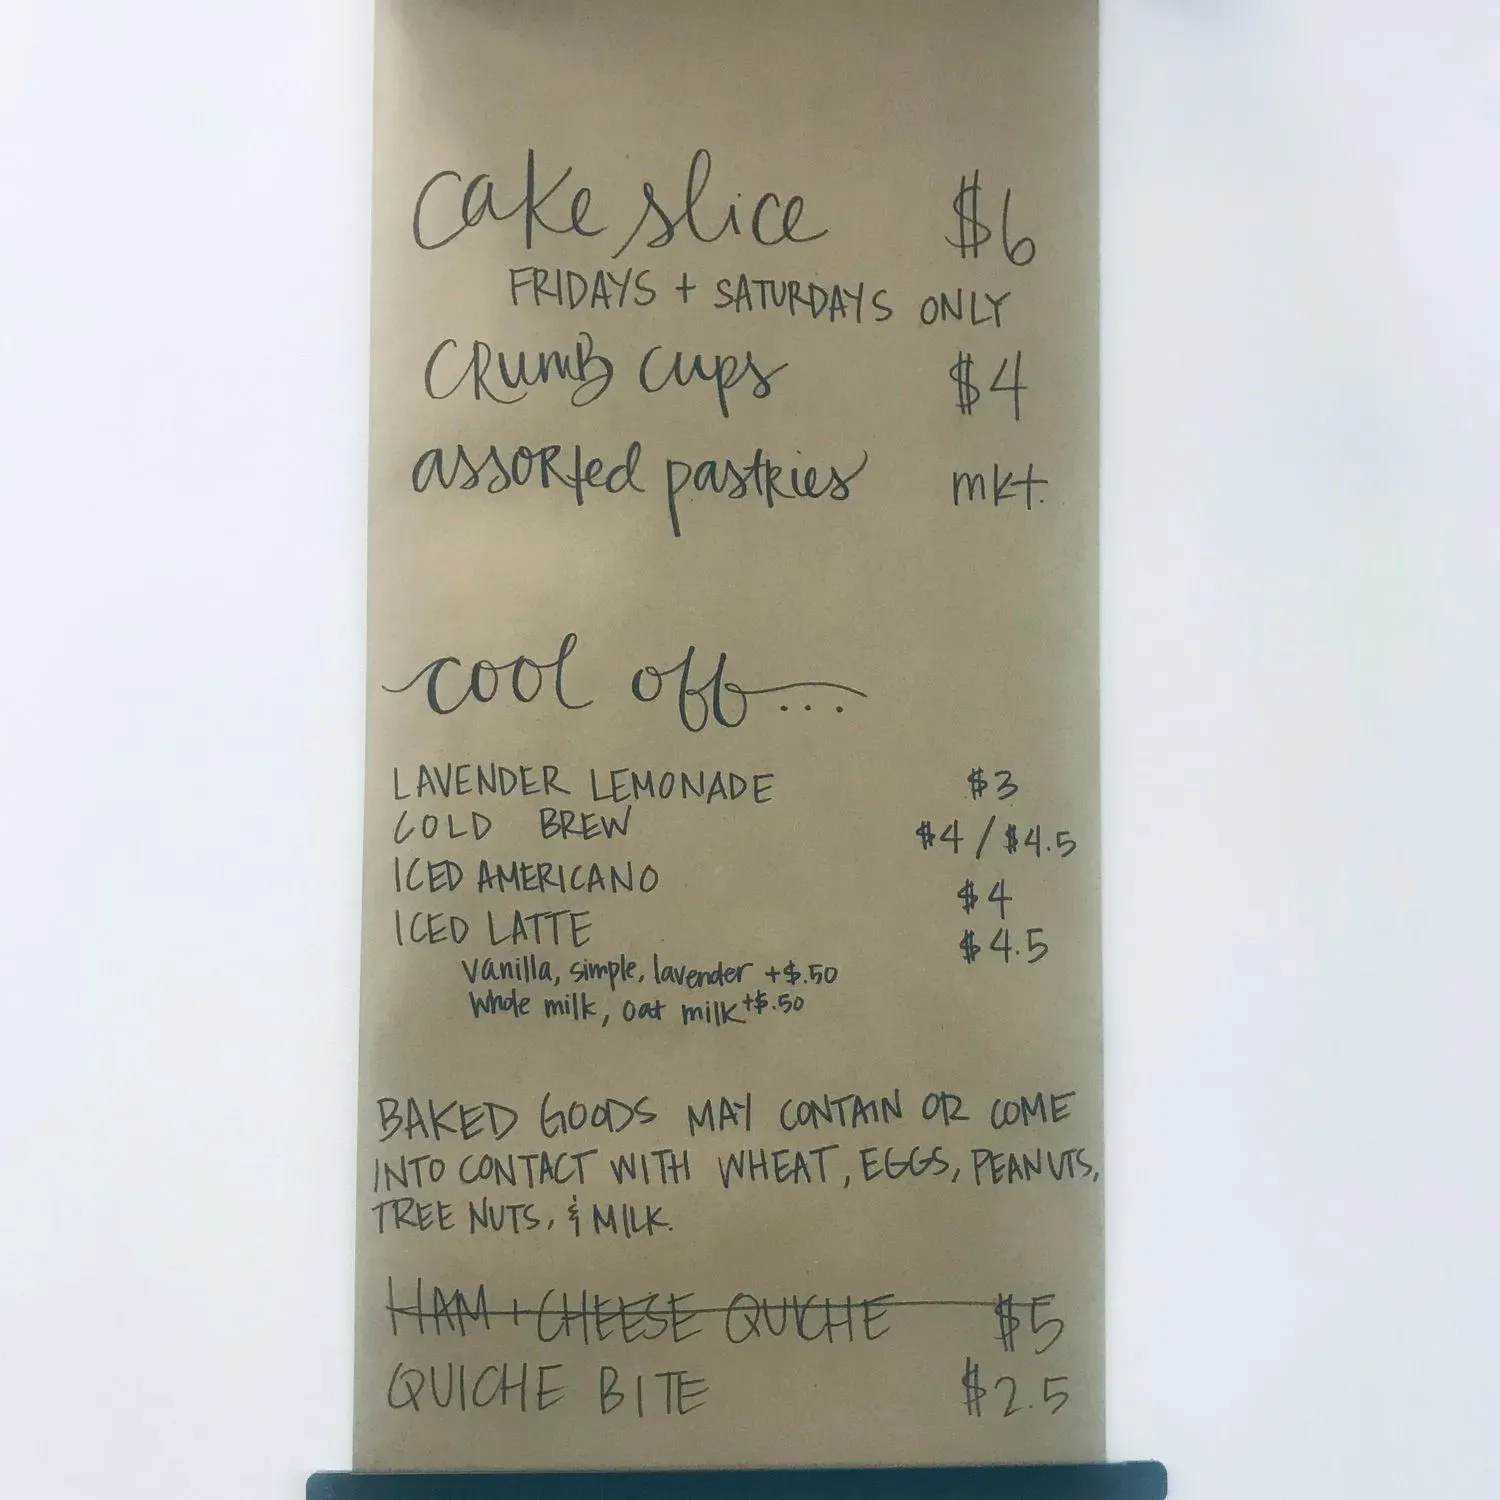 cake slice $6
FRIDAYS + SATURDAYS ONLY
CRumB cups $4
assoRted pastRies mkt.
cool off...
LAVENDER LEMONADE $3
COLD BREW $4/$4.5
ICED AMERICANO $4
ICED LATTE $4.5
vanilla, simple, lavender +$.50
whole milk, oat milk +$.50
BAKED GOODS MAY CONTAIN OR COME
INTO CONTACT WITH WHEAT, EGGS, PEANUTS,
TREE NUTS, & MILK.
HAM + CHEESE QUICHE $5
QUICHE BITE $2.5